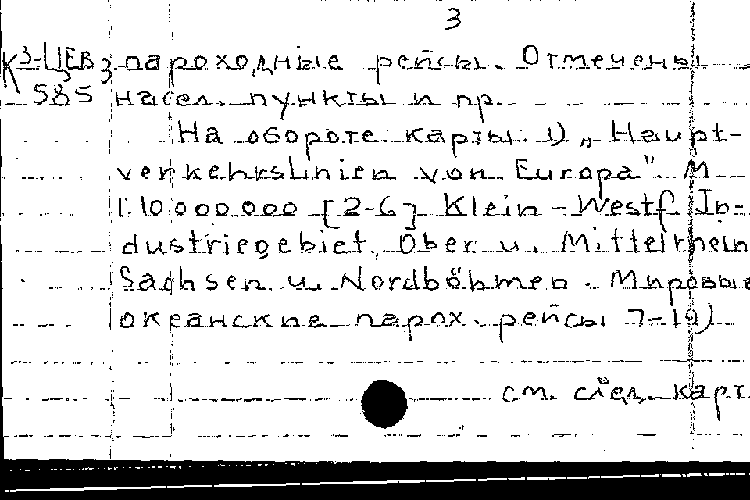 3
К 3-ЦЕВ 3 пароходные рейсы. Отмечены
585 насел. пункты и пр.
На обороте карты 1) „Haupt-
verkehrslinien von Europa". М
1:10 000 000 [2-6] Klein-Westf. In-
dustriegebiet, Ober u. Mittelrhein
Sachsen u. Nordböhmen. Мировые
океанские парох. рейсы 7-10)
см. след. карт.